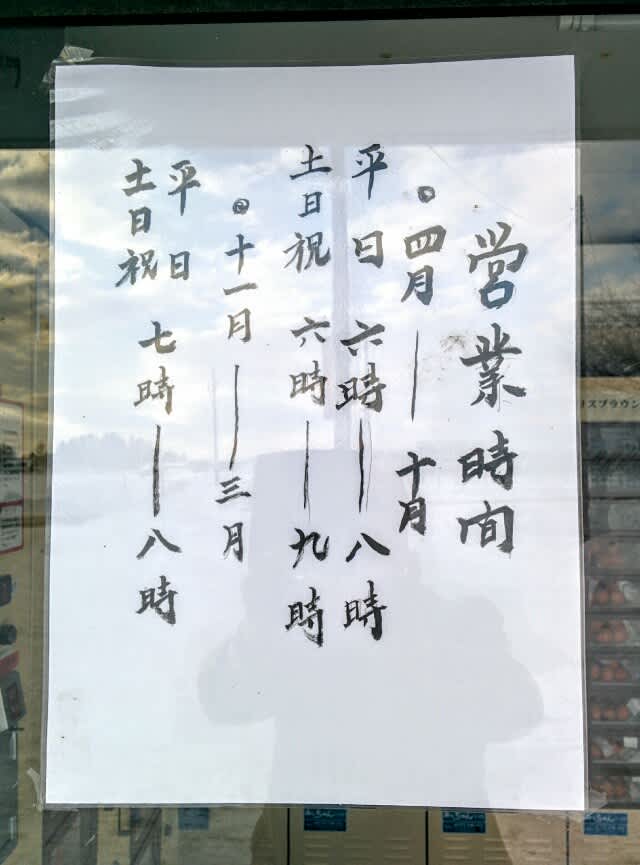 営業時间
◎四月―十月
平日 六時―八時
土日祝 六時―九時
◎十一月―三月
平日
土日祝 七時―八時
スブラウン